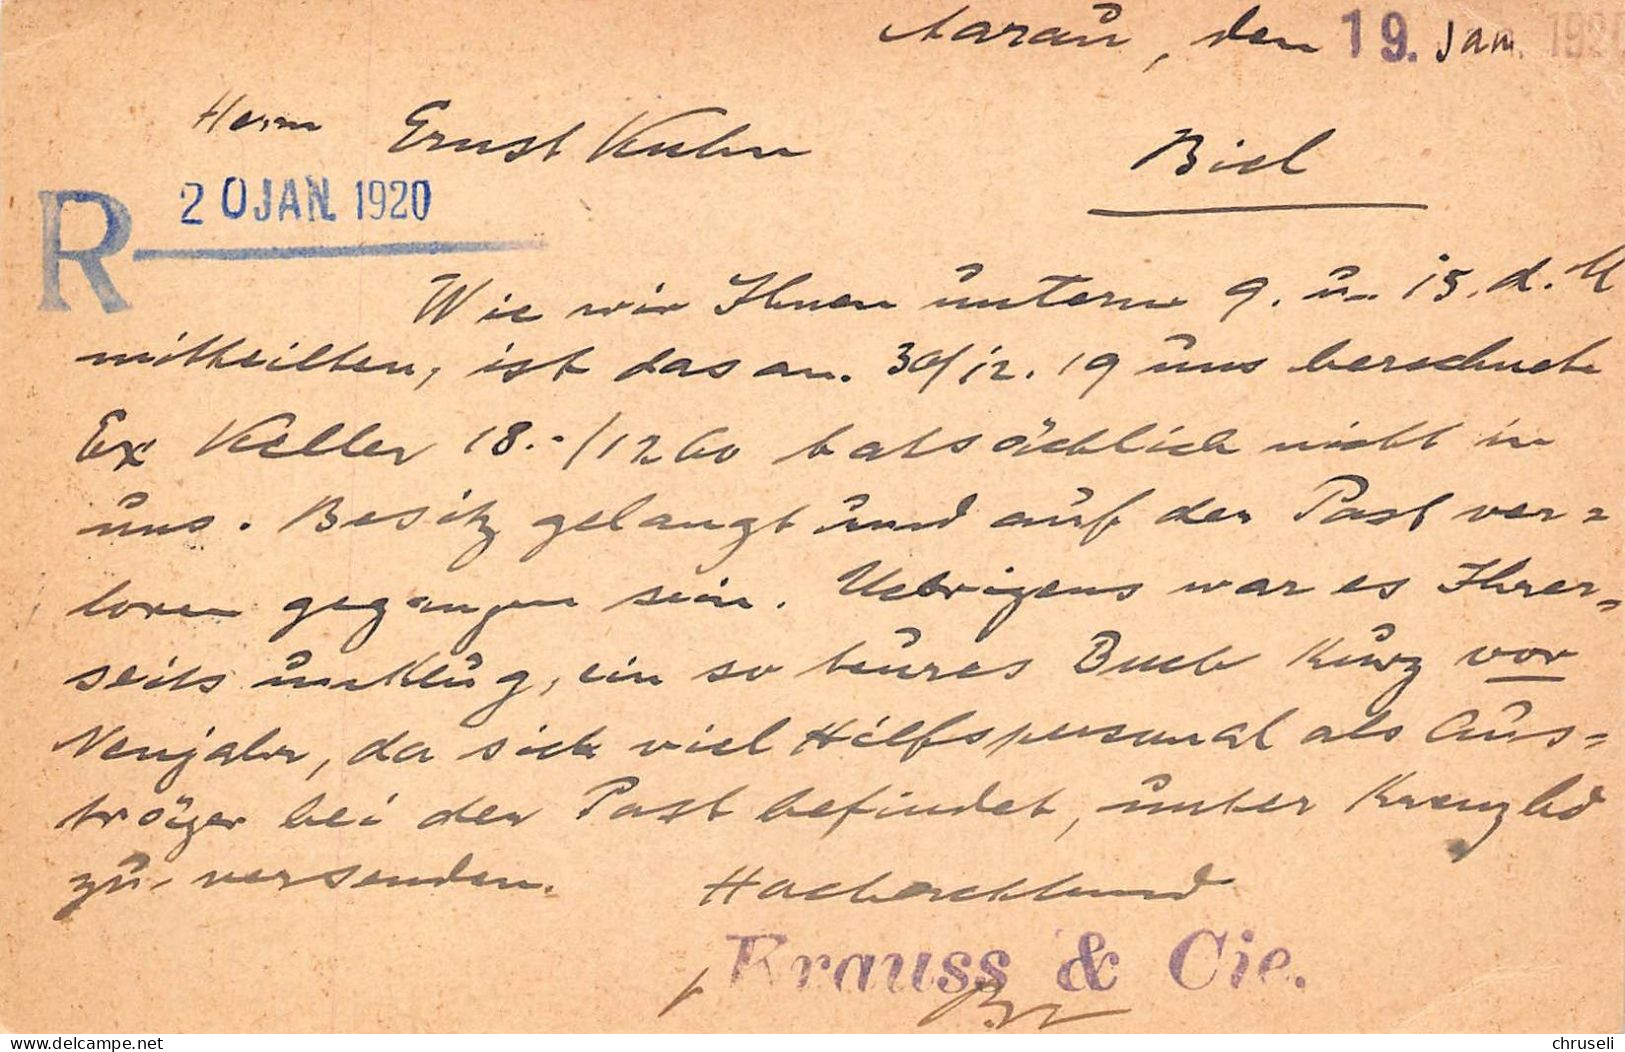 Aarau, den 19. Jan. 1920
Herrn Ernst Kuhn Biel
20 JAN. 1920
R
Wie wir Ihnen unterm 9. u. 15. d. M
mitteilten, ist das am. 30/12. 19 uns berechnete
Ex Keller 18.-/1260 tatsächlich nicht in
uns. Besitz gelangt und auf der Post ver=
loren gegangen sein. Uebrigens war es Ihrer=
seits unklug, ein so teures Buch kurz vor
Neujahr, da sich viel Hilfspersonal als Aus=
träger bei der Post befindet, unter Kreuzbd
zu versenden. Hochachtend
Krauss & Cie.
delcampe.net chruseli